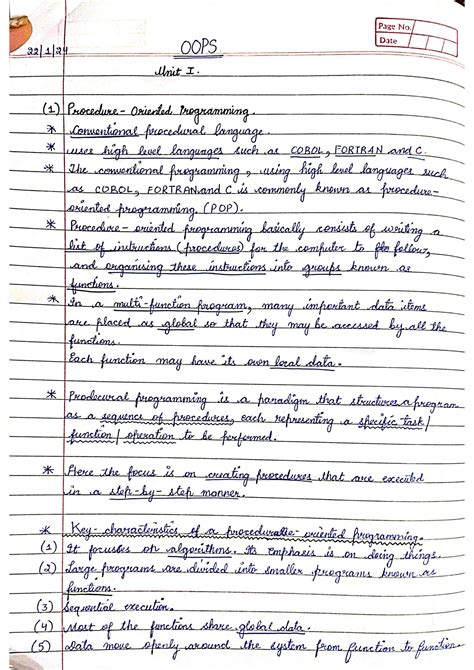 Page No.
Date
22/1/24
OOPS
Unit I.
(1) Procedure-Oriented Programming.
* Conventional procedural language.
* uses high level languages such as COBOL, FORTRAN and C.
* The conventional programming, using high level languages such
as COBOL, FORTRAN and C is commonly known as procedure-
oriented programming. (POP).
* Procedure-oriented programming basically consists of writing a
list of instructions (procedures) for the computer to follow,
and organising these instructions into groups known as
functions.
* In a multi-function program, many important data items
are placed as global so that they may be accessed by all the
functions.
Each function may have its own local data.
* Prodecural programming is a paradigm that structures a program
as a sequence of procedures, each representing a specific task/
function/operation to be performed.
* Here the focus is on creating procedures that are executed
in a step-by-step manner.
* Key-characteristics of a procedure-oriented programming.
(1) It focusses on algorithms. Its emphasis is on doing things.
(2) Large programs are divided into smaller programs known as
functions.
(3) Sequential execution.
(4) Most of the functions share global data.
(5) Data move openly around the system from function to function